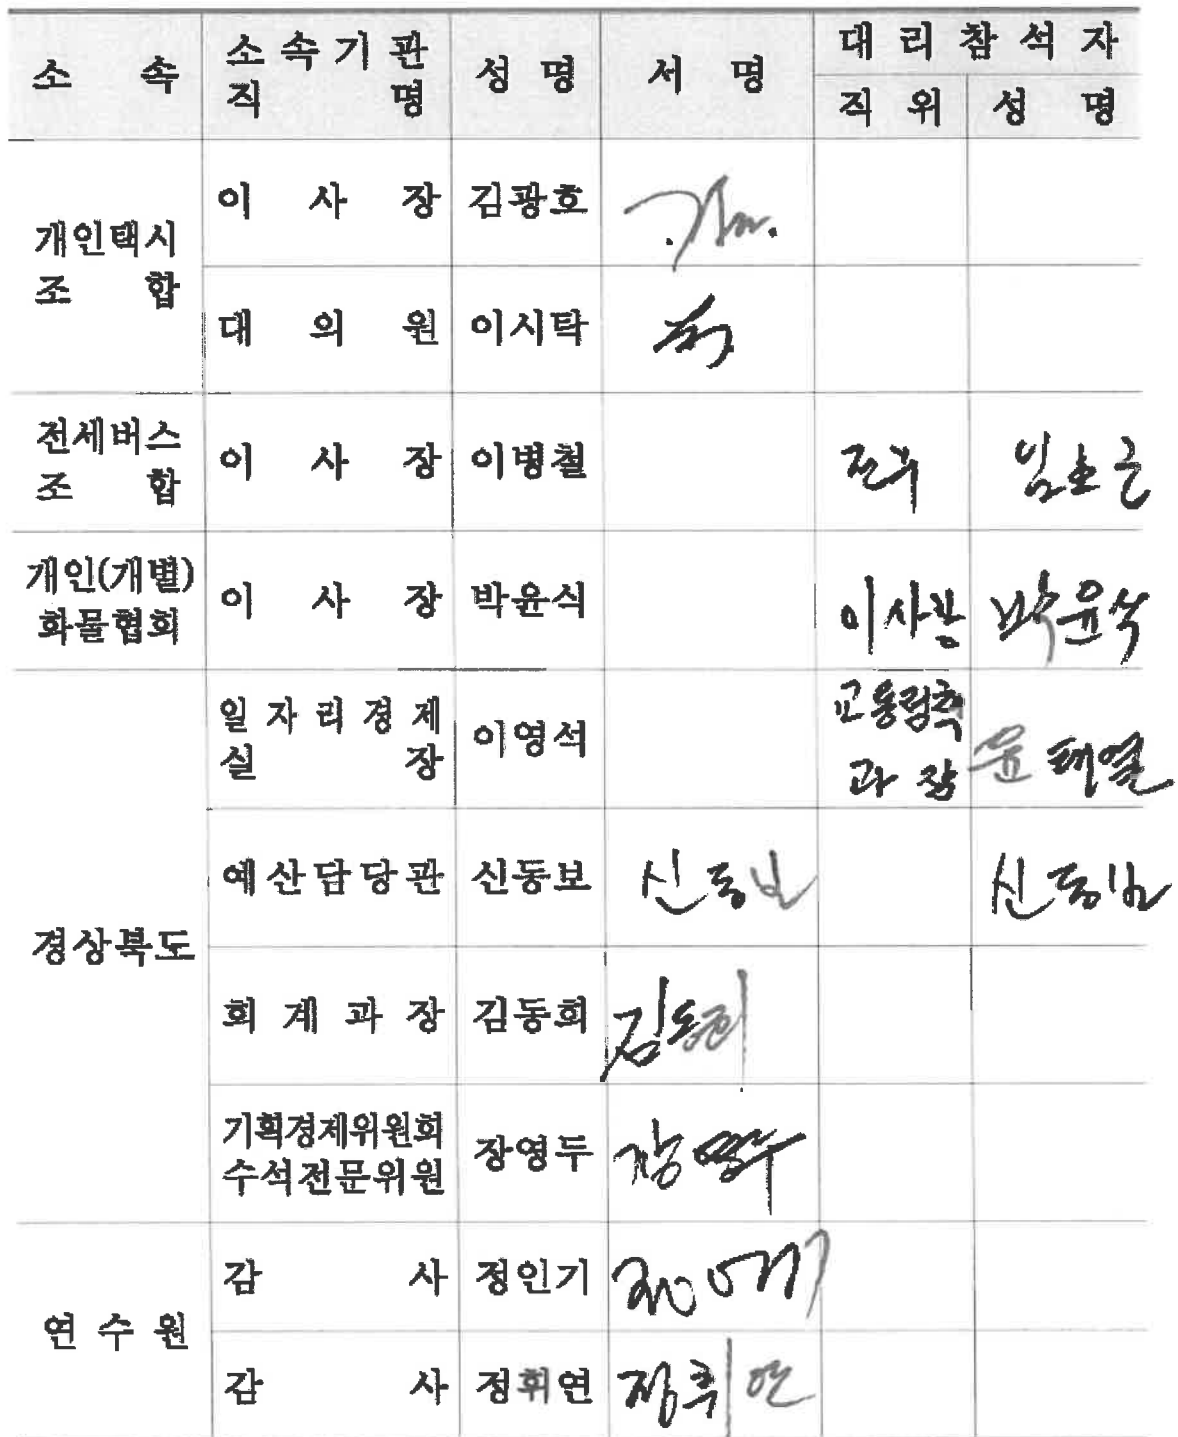 소 속 소속기관 성 명 서 명 대 리 참 석 자
직 명 직 위 성 명
개인택시
조 합
이 사 장 김광호
대 의 원 이시탁
전세버스
조 합
이 사 장 이병철 전무
개인(개별)
화물협회
이 사 장 박윤식 이사장 박윤식
경상북도
일자리경제
실 장
이영석
교통정책
과장
윤태열
예산담당관 신동보 신동보 신동보
회 계 과 장 김동희 김동희
기획경제위원회
수석전문위원
장영두 장영두
연 수 원
감 사 정인기 정인기
감 사 정휘연 정휘연